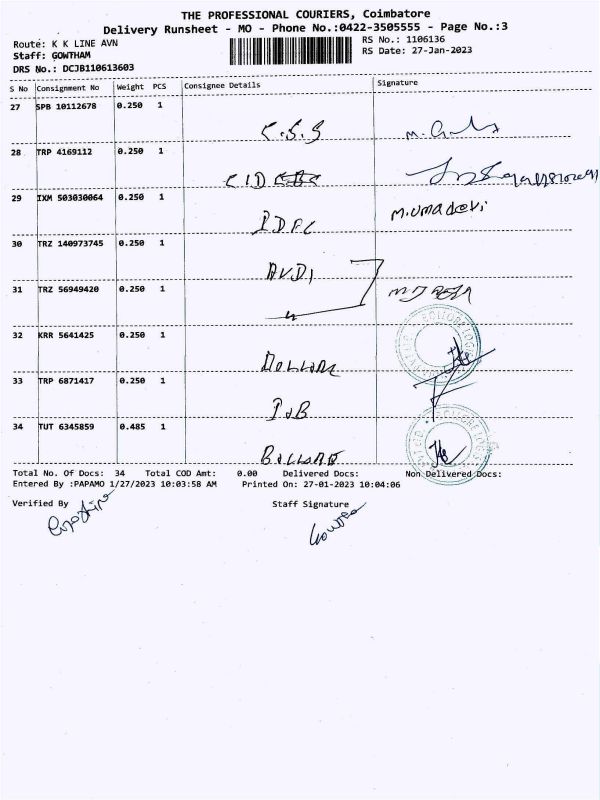 THE PROFESSIONAL COURIERS, Coimbatore
Delivery Runsheet - MO - Phone No.:0422-3505555 - Page No.:3
Route: K K LINE AVN
RS No.: 1106136
Staff: GOWTHAM
RS Date: 27-Jan-2023
DRS No.: DCJB110613603
S No Consignment No Weight PCS Consignee Details Signature
27 SPB 10112678 0.250 1
28 TRP 4169112 0.250 1
CID
29 IXM 503030064 0.250 1 M.Umadevi
IDFC
30 TRZ 140973745 0.250 1
AUDI
31 TRZ 56949420 0.250 1
32 KRR 5641425 0.250 1
33 TRP 6871417 0.250 1
IOB
34 TUT 6345859 0.485 1
Total No. Of Docs: 34 Total COD Amt: 0.00 Delivered Docs: Non Delivered Docs:
Entered By :PAPAMO 1/27/2023 10:03:58 AM Printed On: 27-01-2023 10:04:06
Verified By Staff Signature